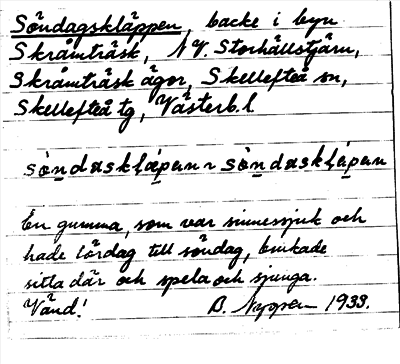 Söndagskläppen, backe i byn
Skråmträsk, NV. Storhällstjärn,
Skråmträsk ägor, Skellefteå sn,
Skellefteå tg, Västerb. l
sòndasklæ̀pen ~ sòndasklæ̀pen
En gumma, som var sinnessjuk och
hade lördag till söndag, brukade
sitta där och spela och sjunga.
Vänd! B. Nygren 1933.